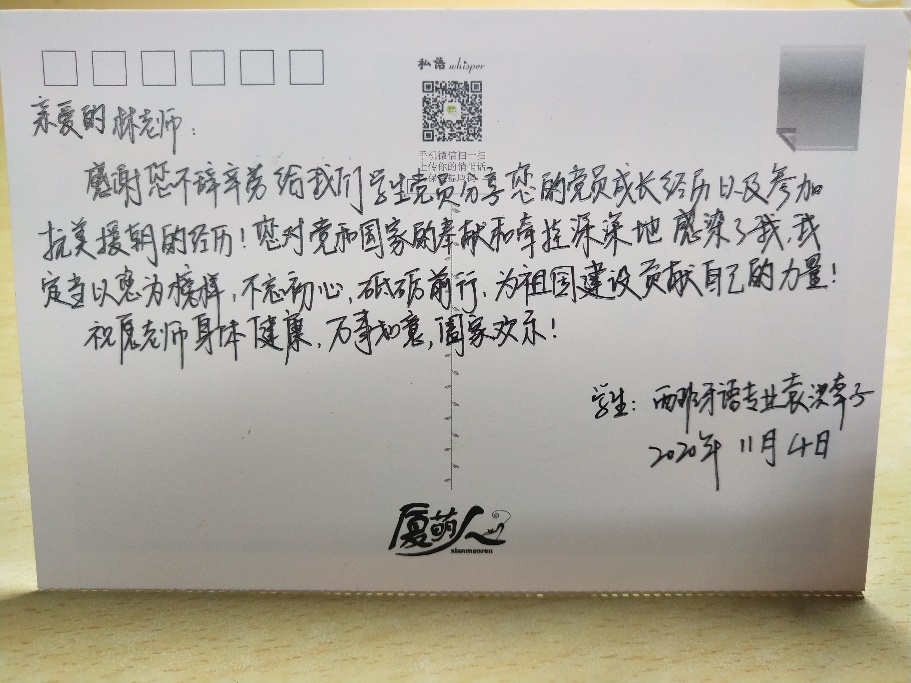 私语 whisper
手机微信扫一扫
上传你的情话
亲爱的林老师：
感谢您不辞辛劳给我们学生党员分享您的党员成长经历以及参加
抗美援朝的经历！您对党和国家的奉献和牵挂深深地感染了我，我
定当以您为榜样，不忘初心，砥砺前行，为祖国建设贡献自己的力量！
祝愿老师身体健康，万事如意，阖家欢乐！
学生：西班牙语专业袁
2020年11月4日
厦萌人
xianmenren